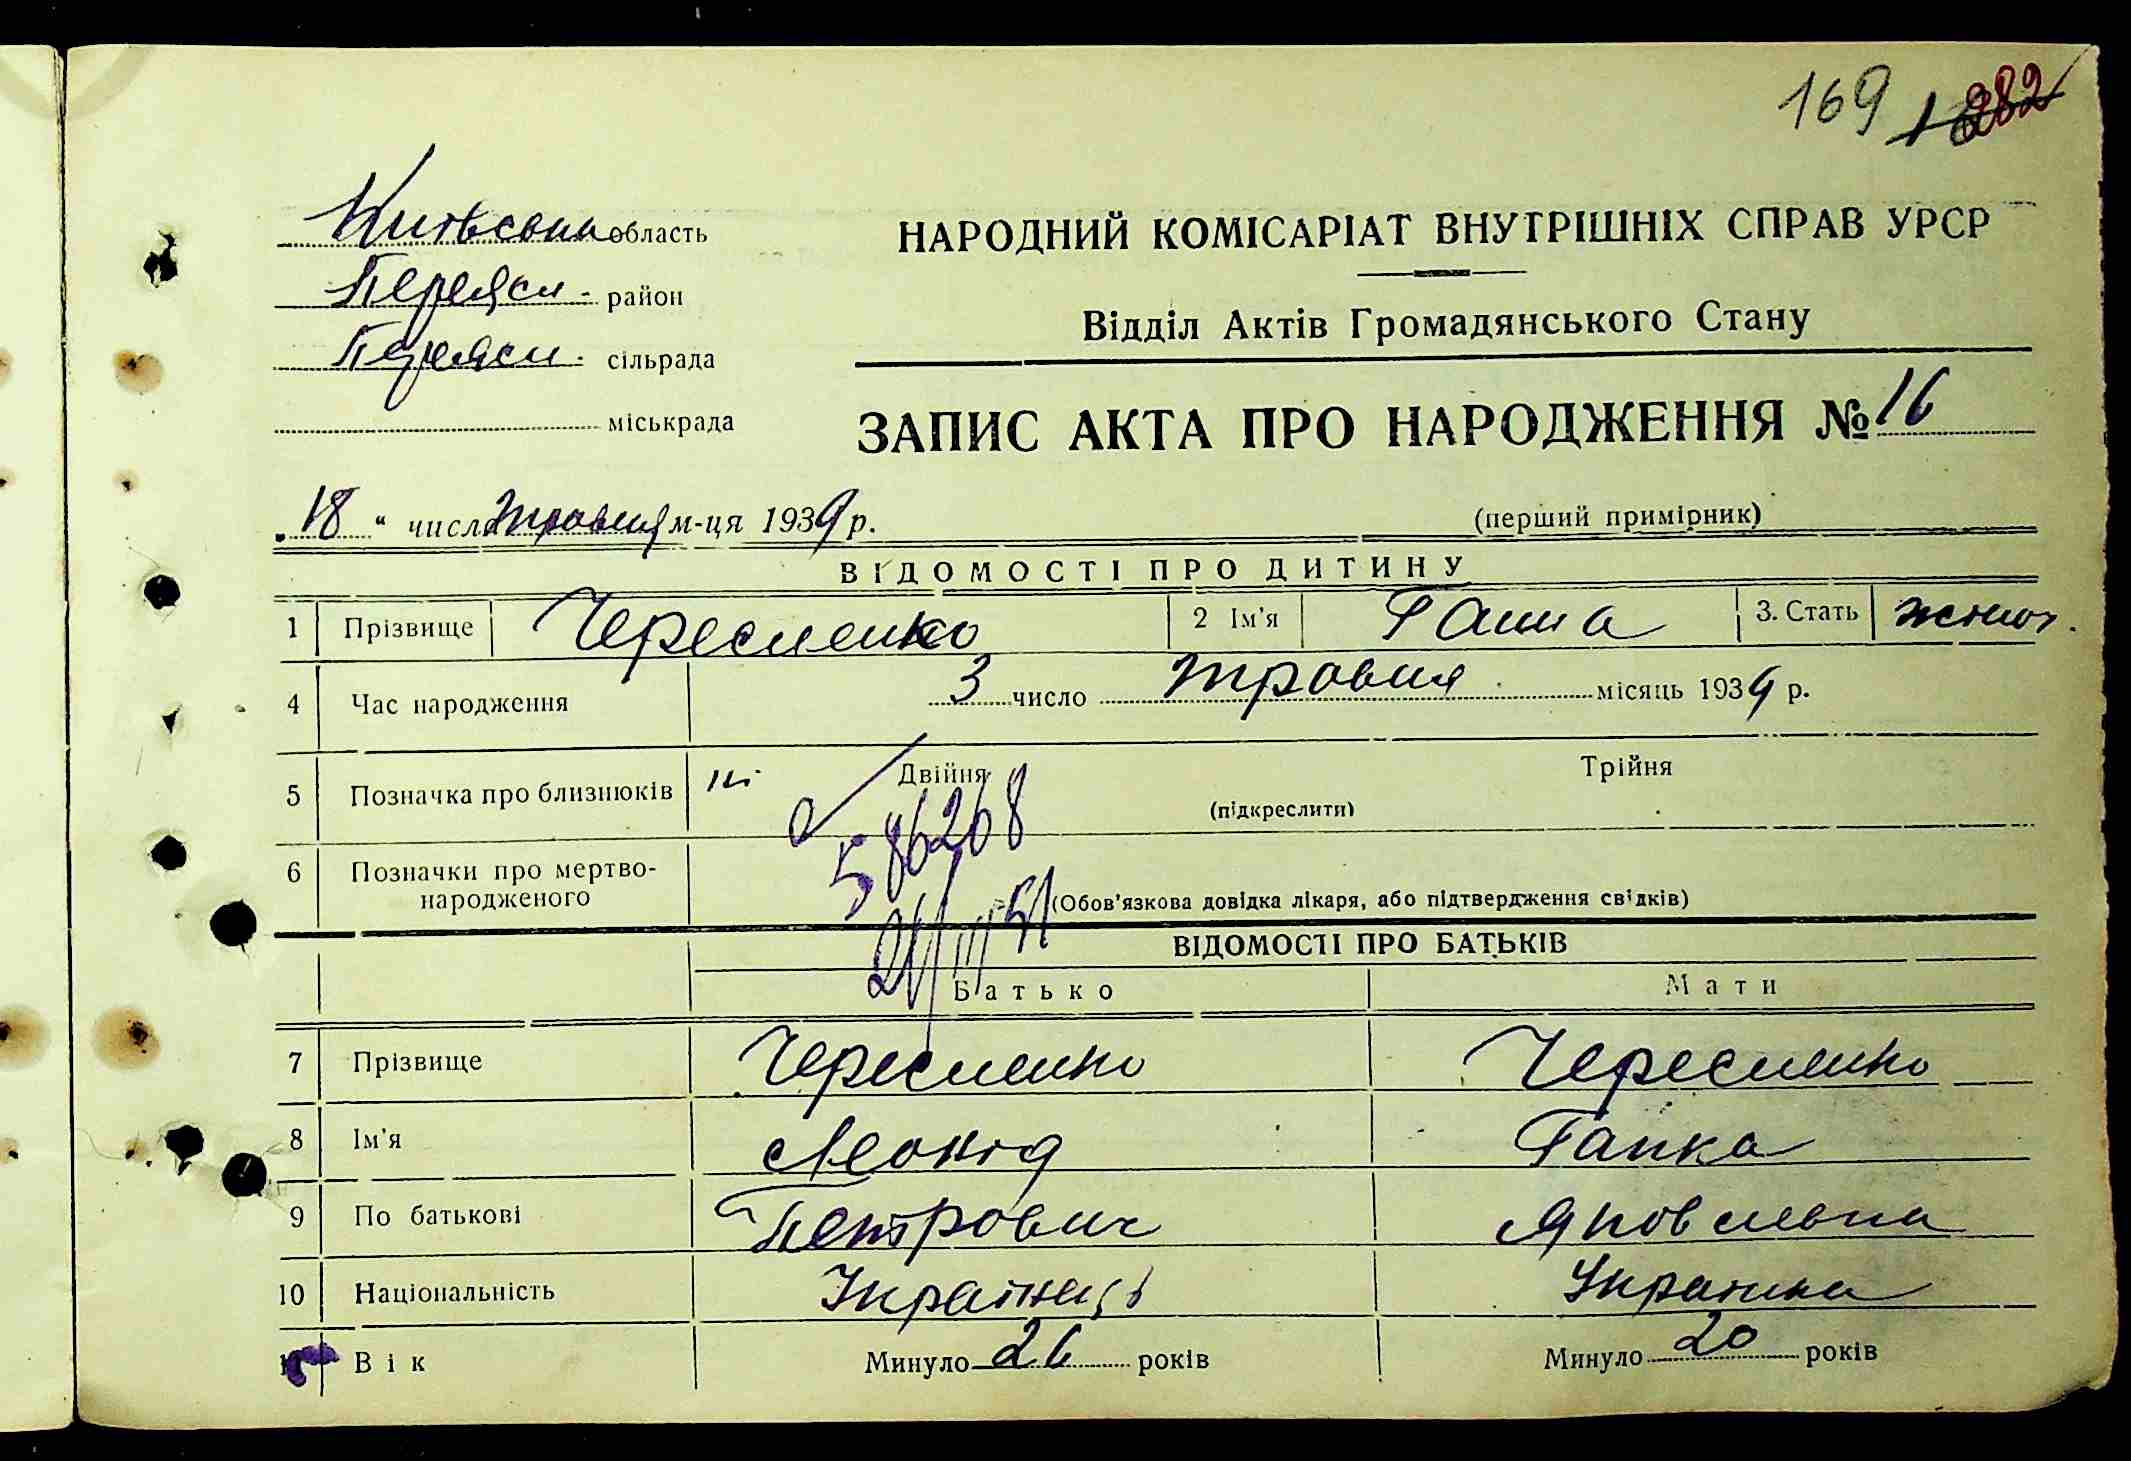 169 282
Київська область
Переясл. район
Переясл. сільрада
міськрада
НАРОДНИЙ КОМІСАРІАТ ВНУТРІШНІХ СПРАВ УРСР
Відділ Актів Громадянського Стану
ЗАПИС АКТА ПРО НАРОДЖЕННЯ № 16
„18“ числа травня м-ця 1939 р.
(перший примірник)
ВІДОМОСТІ ПРО ДИТИНУ
1 Прізвище Чересленко 2 Ім'я Ганна 3. Стать жіноч.
4 Час народження 3 число травня місяць 1939 р.
5 Позначка про близнюків ні Двійня Трійня
(підкреслити)
586268
6 Позначки про мертво-
народженого
(Обов'язкова довідка лікаря, або підтвердження свідків)
ВІДОМОСТІ ПРО БАТЬКІВ
Батько Мати
7 Прізвище Чересленко Чересленко
8 Ім'я Леонід Гапка
9 По батькові Петрович Яковлевна
10 Національність Українець Українка
11 Вік Минуло 26 років Минуло 20 років